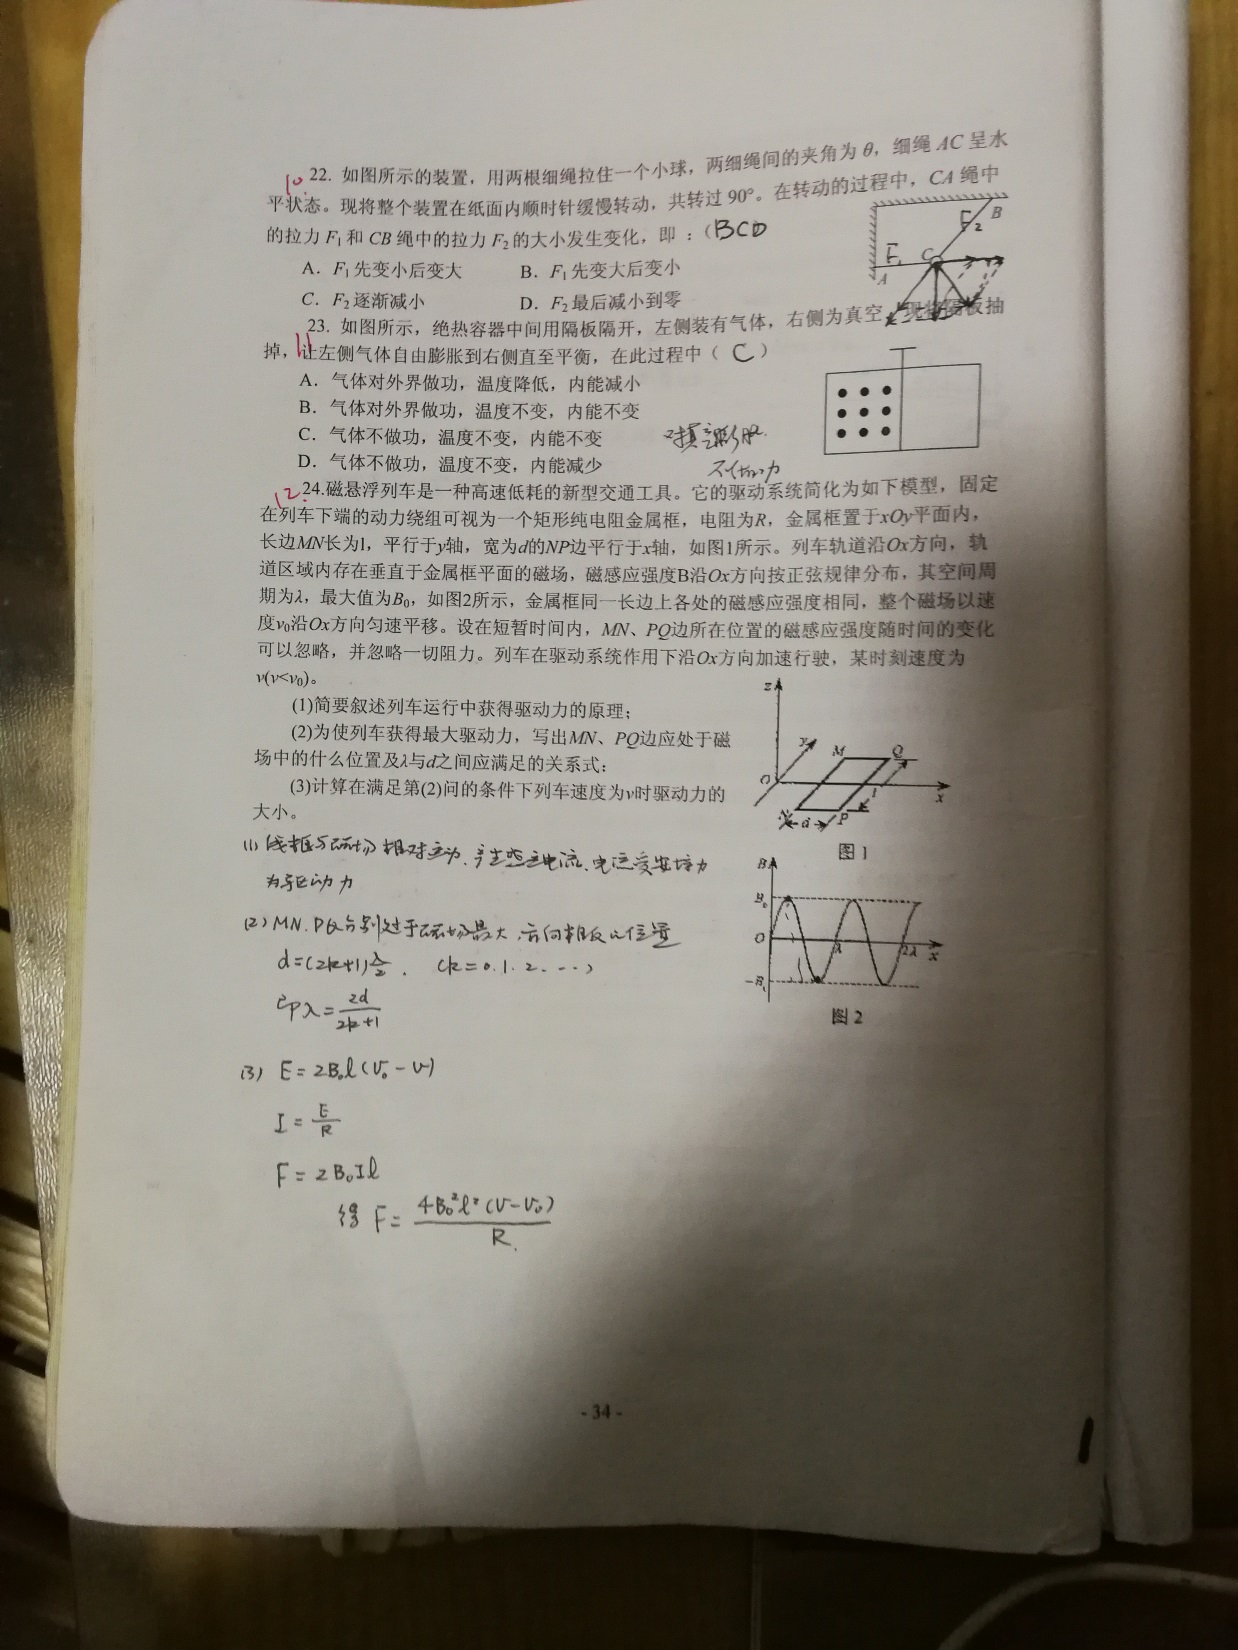 10.
22. 如图所示的装置，用两根细绳拉住一个小球，两细绳间的夹角为 θ，细绳 AC 呈水
平状态。现将整个装置在纸面内顺时针缓慢转动，共转过 90°。在转动的过程中，CA 绳中
的拉力 F₁ 和 CB 绳中的拉力 F₂ 的大小发生变化，即：（BCD
A．F₁ 先变小后变大 B．F₁ 先变大后变小
C．F₂ 逐渐减小 D．F₂ 最后减小到零
F₂ B
F₁ C
A
11
23. 如图所示，绝热容器中间用隔板隔开，左侧装有气体，右侧为真空，现将隔板抽
掉，让左侧气体自由膨胀到右侧直至平衡，在此过程中（ C ）
A．气体对外界做功，温度降低，内能减小
B．气体对外界做功，温度不变，内能不变
C．气体不做功，温度不变，内能不变
D．气体不做功，温度不变，内能减少
对真空膨胀
不做功
12.
24.磁悬浮列车是一种高速低耗的新型交通工具。它的驱动系统简化为如下模型，固定
在列车下端的动力绕组可视为一个矩形纯电阻金属框，电阻为R，金属框置于xOy平面内，
长边MN长为l，平行于y轴，宽为d的NP边平行于x轴，如图1所示。列车轨道沿Ox方向，轨
道区域内存在垂直于金属框平面的磁场，磁感应强度B沿Ox方向按正弦规律分布，其空间周
期为λ，最大值为B₀，如图2所示，金属框同一长边上各处的磁感应强度相同，整个磁场以速
度v₀沿Ox方向匀速平移。设在短暂时间内，MN、PQ边所在位置的磁感应强度随时间的变化
可以忽略，并忽略一切阻力。列车在驱动系统作用下沿Ox方向加速行驶，某时刻速度为
v(v<v₀)。
(1)简要叙述列车运行中获得驱动力的原理；
(2)为使列车获得最大驱动力，写出MN、PQ边应处于磁
场中的什么位置及λ与d之间应满足的关系式：
(3)计算在满足第(2)问的条件下列车速度为v时驱动力的
大小。
z
y
M Q
O x
l
N d P
图1
B
B₀
O λ 2λ x
-B₀
图2
(1) 线框与磁场相对运动、产生感应电流、电流受安培力
为驱动力
(2) MN、PQ分别处于磁场最大，方向相反的位置
d=(2k+1)λ/2，（k=0.1.2.…）
即λ=2d/(2k+1)
(3) E=2B₀l(v₀-v)
I=E/R
F=2B₀Il
得 F=4B₀²l²(v-v₀)/R.
- 34 -